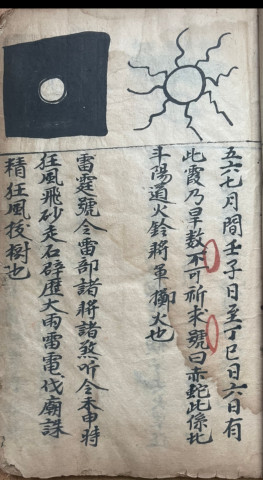 五六七月間壬子日至丁巳日六日有
此霞乃旱数不可祈求號曰赤蛇此係北
斗陽道火鈴將軍擲火也
雷霆號令雷部諸將諸煞听令未申時
狂風飛砂走石辟歷大雨雷電伐廟誅
精狂風拔樹也